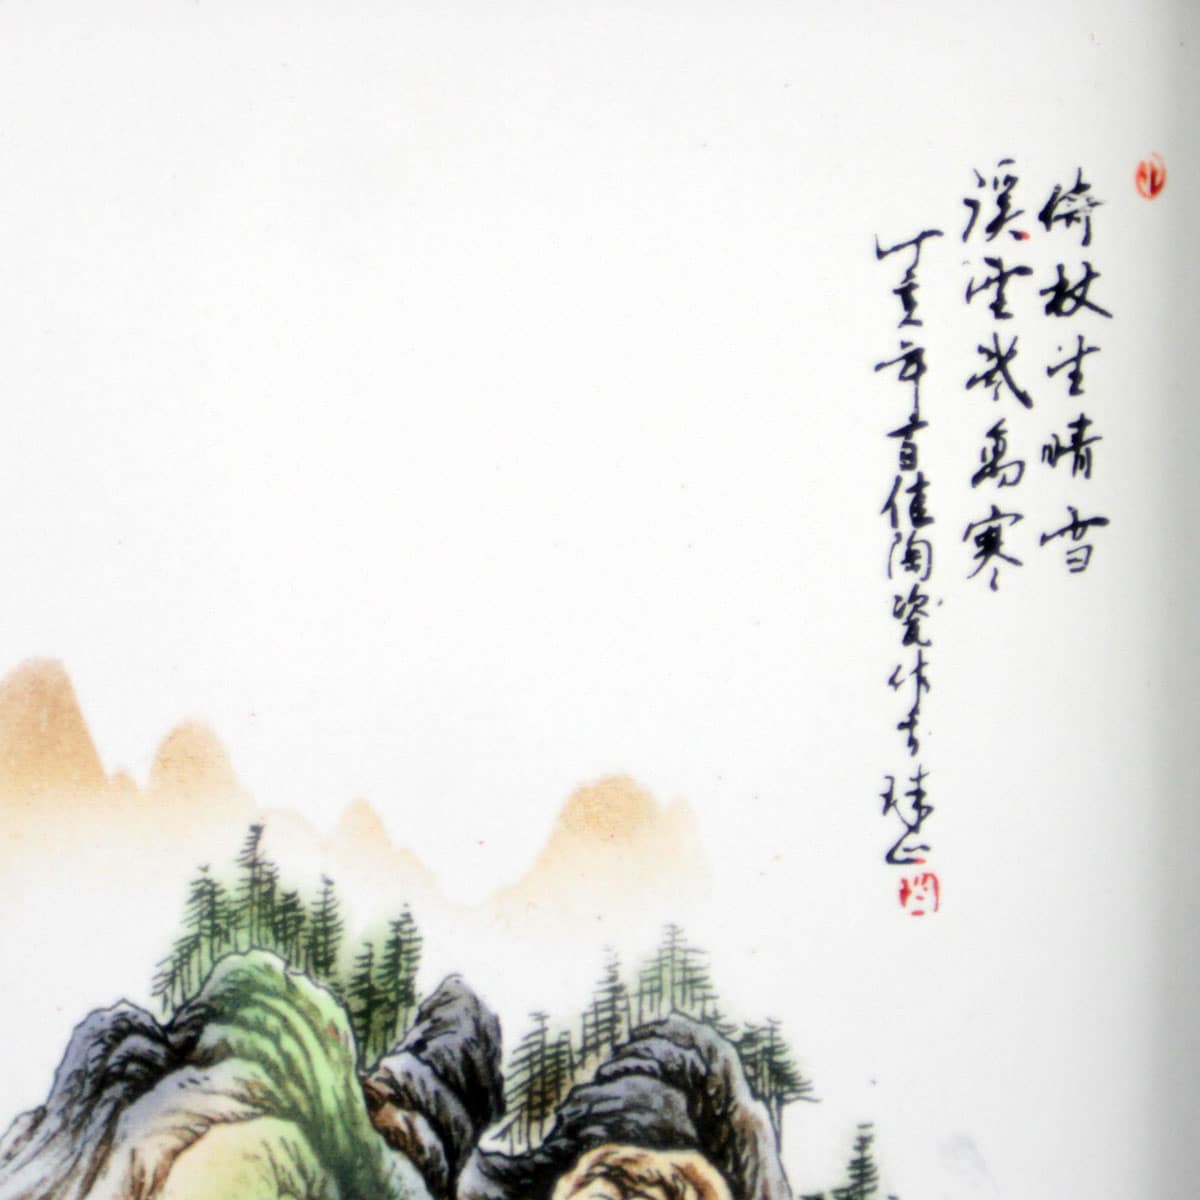 倚杖望晴雪
溪雲幾萬寒
丁亥年百佳陶瓷作于珠山